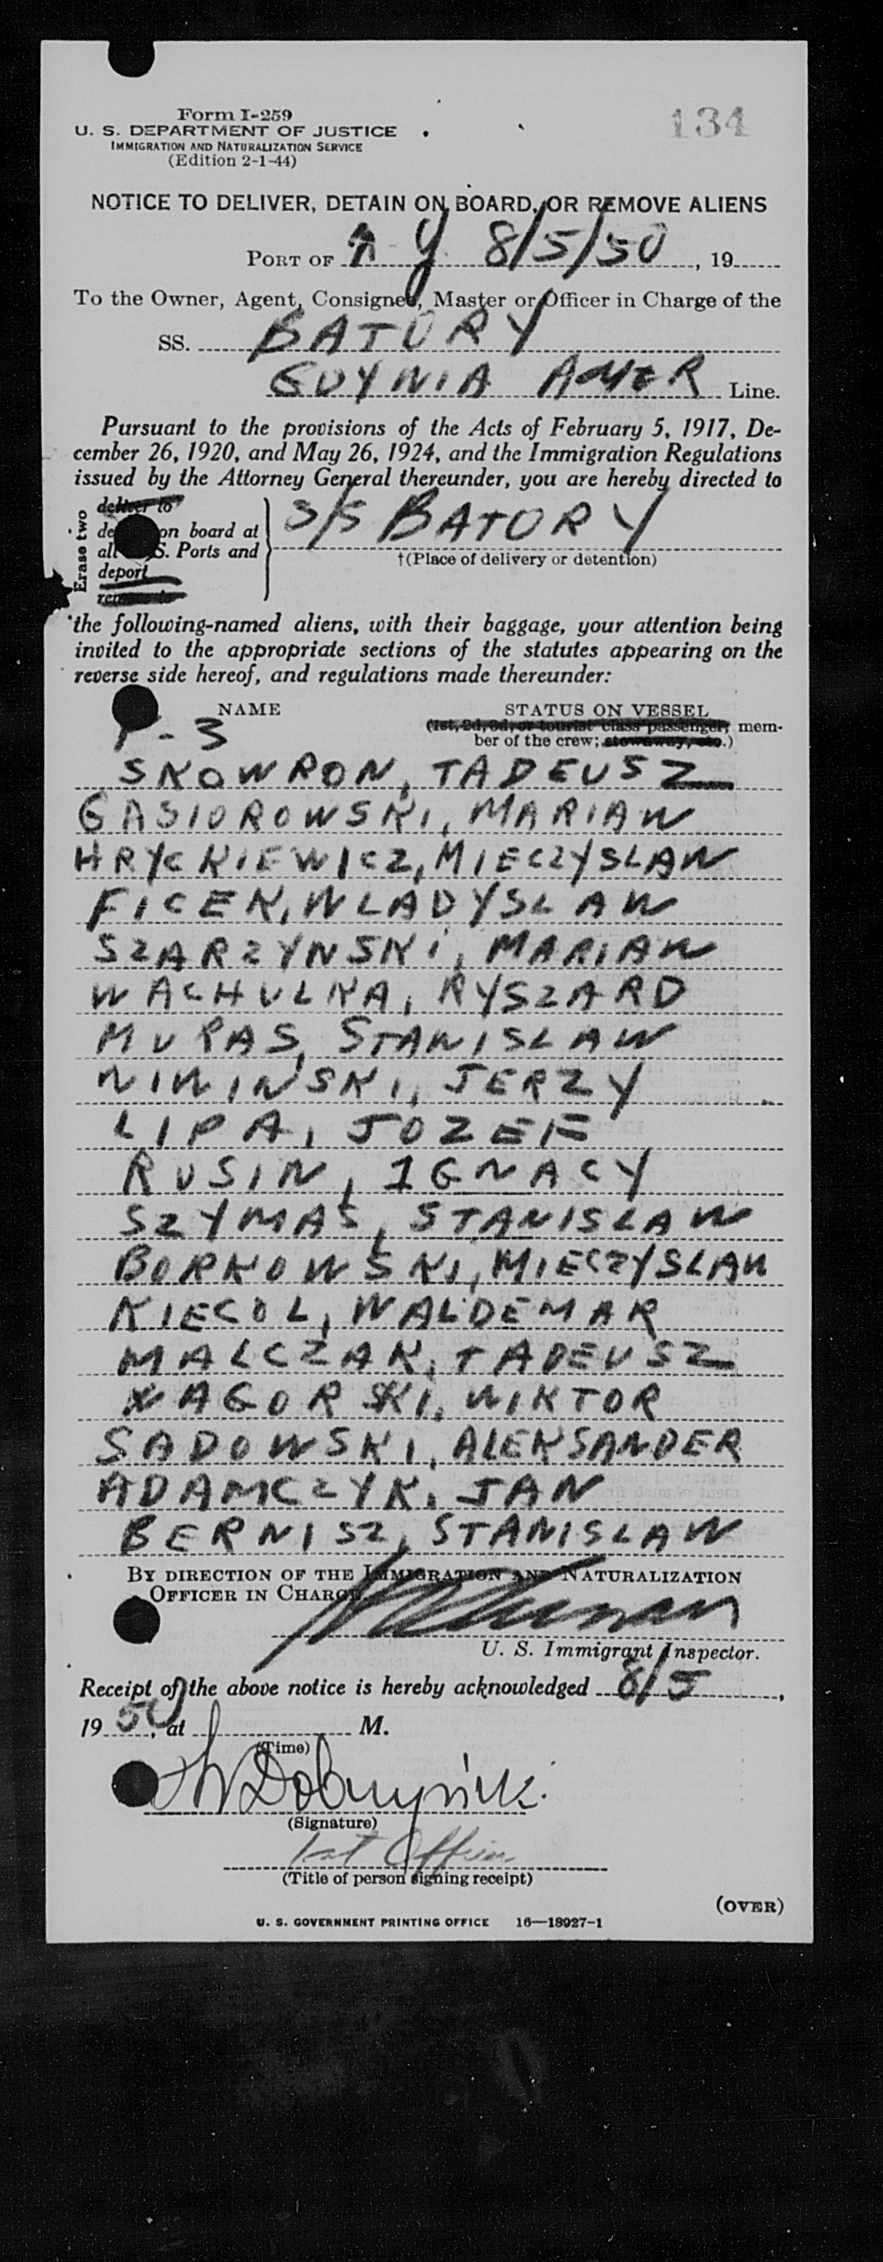 Form I-259
U. S. DEPARTMENT OF JUSTICE
IMMIGRATION AND NATURALIZATION SERVICE
(Edition 2-1-44)
134
NOTICE TO DELIVER, DETAIN ON BOARD, OR REMOVE ALIENS
PORT OF N Y 8/5/50, 19
To the Owner, Agent, Consignee, Master or Officer in Charge of the
SS. BATORY
GDYNIA AMER Line.
Pursuant to the provisions of the Acts of February 5, 1917, De-
cember 26, 1920, and May 26, 1924, and the Immigration Regulations
issued by the Attorney General thereunder, you are hereby directed to
Erase two
deliver to
on board at
S. Ports and
deport
S/S BATORY
†(Place of delivery or detention)
the following-named aliens, with their baggage, your attention being
invited to the appropriate sections of the statutes appearing on the
reverse side hereof, and regulations made thereunder:
NAME
STATUS ON VESSEL
(1st, 2d, 3d, or tourist class passenger; mem-
ber of the crew; stowaway, etc.)
P-3
SKOWRON, TADEUSZ
GASIOROWSKI, MARIAN
HRYCKIEWICZ, MIECZYSLAW
FICEK, WLADYSLAW
SZARZYNSKI, MARIAN
WACHULKA, RYSZARD
MURAS, STANISLAW
NIWINSKI, JERZY
LIPA, JOZEF
RUSIN, IGNACY
SZYMAS, STANISLAW
BORKOWSKI, MIECZYSLAW
KIECOL, WALDEMAR
MALCZAK, TADEUSZ
NAGORSKI, WIKTOR
SADOWSKI, ALEKSANDER
ADAMCZYK, JAN
BERNISZ, STANISLAW
BY DIRECTION OF THE IMMIGRATION AND NATURALIZATION
OFFICER IN CHARGE
U. S. Immigrant Inspector.
Receipt of the above notice is hereby acknowledged 8/5,
1950, at M.
(Time)
(Signature)
1st Officer
(Title of person signing receipt)
(OVER)
U. S. GOVERNMENT PRINTING OFFICE 16—18927-1